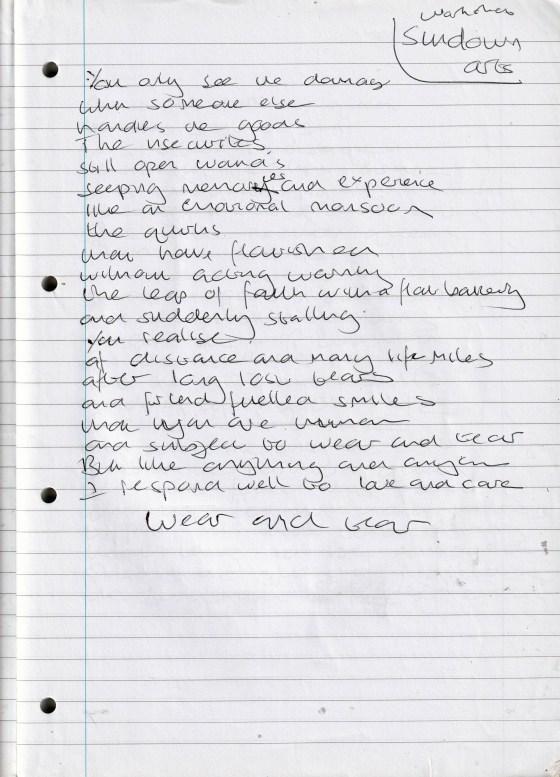 workshop
Sundown
arts
You only see the damage
when someone else
handles the goods
The insecurities
still open wounds
seeping memories and experience
like an emotional monsoon
the quirks
that have flourished
without acting warning
the leap of faith with a flat battery
and suddenly stalling.
You realise
at distance and many life miles
after long lost tears
and friend fuelled smiles
that you are human
and subject to wear and tear
But like anything and anyone
I respond well to love and care
Wear and tear